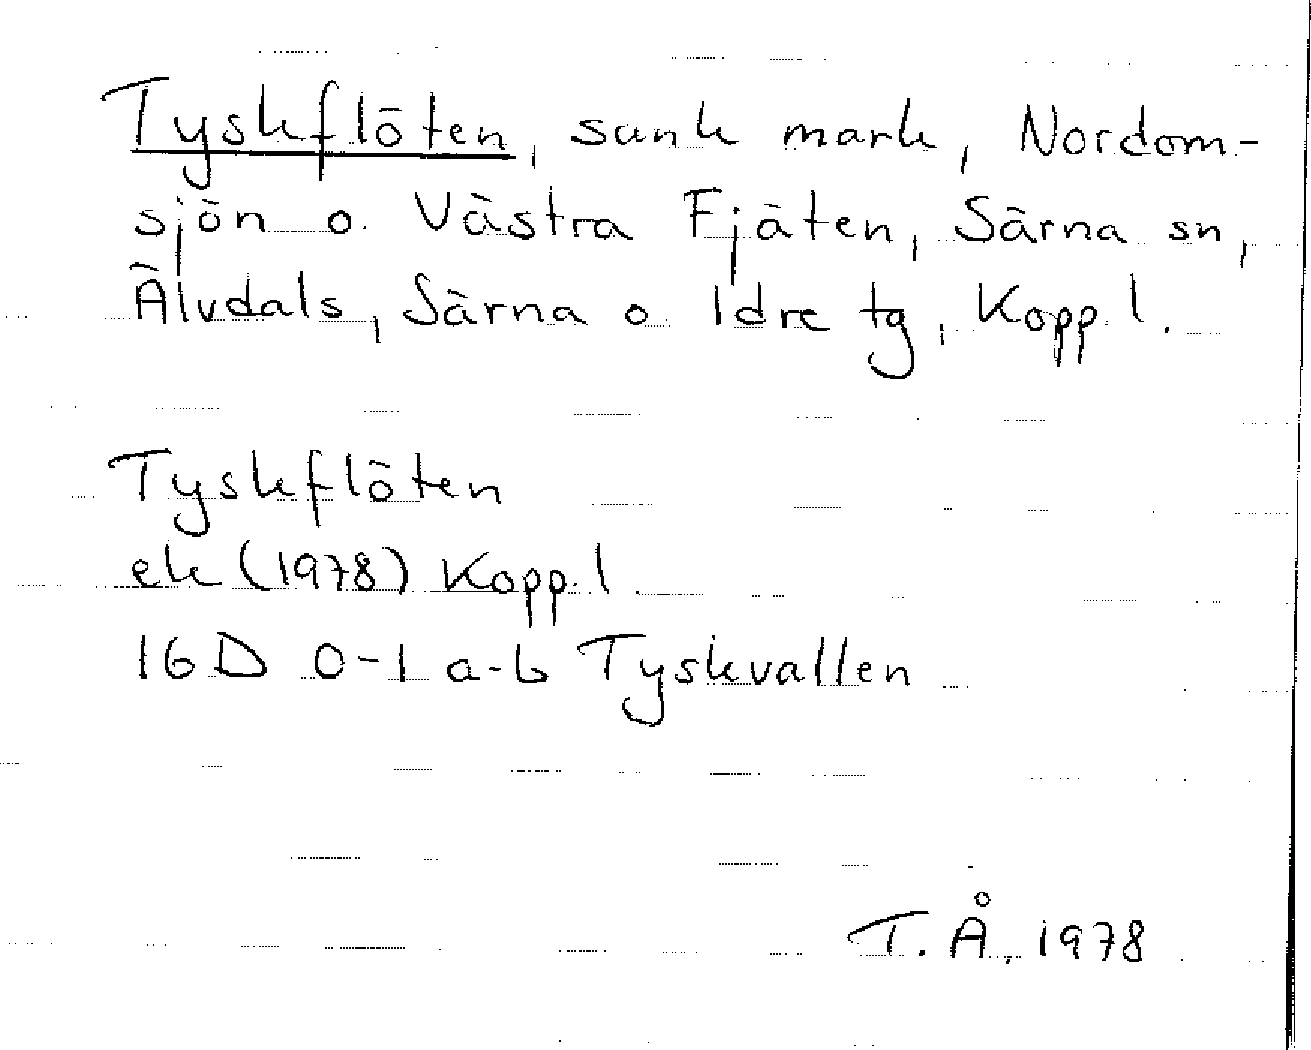 Tyskflöten, sank mark, Nordom-
sjön o. Västra Fjäten, Särna sn,
Älvdals, Särna o. Idre tg, Kopp. l.
Tyskflöten
ek (1978) Kopp. l.
16 D 0-1 a-b Tyskvallen
T. Å, 1978